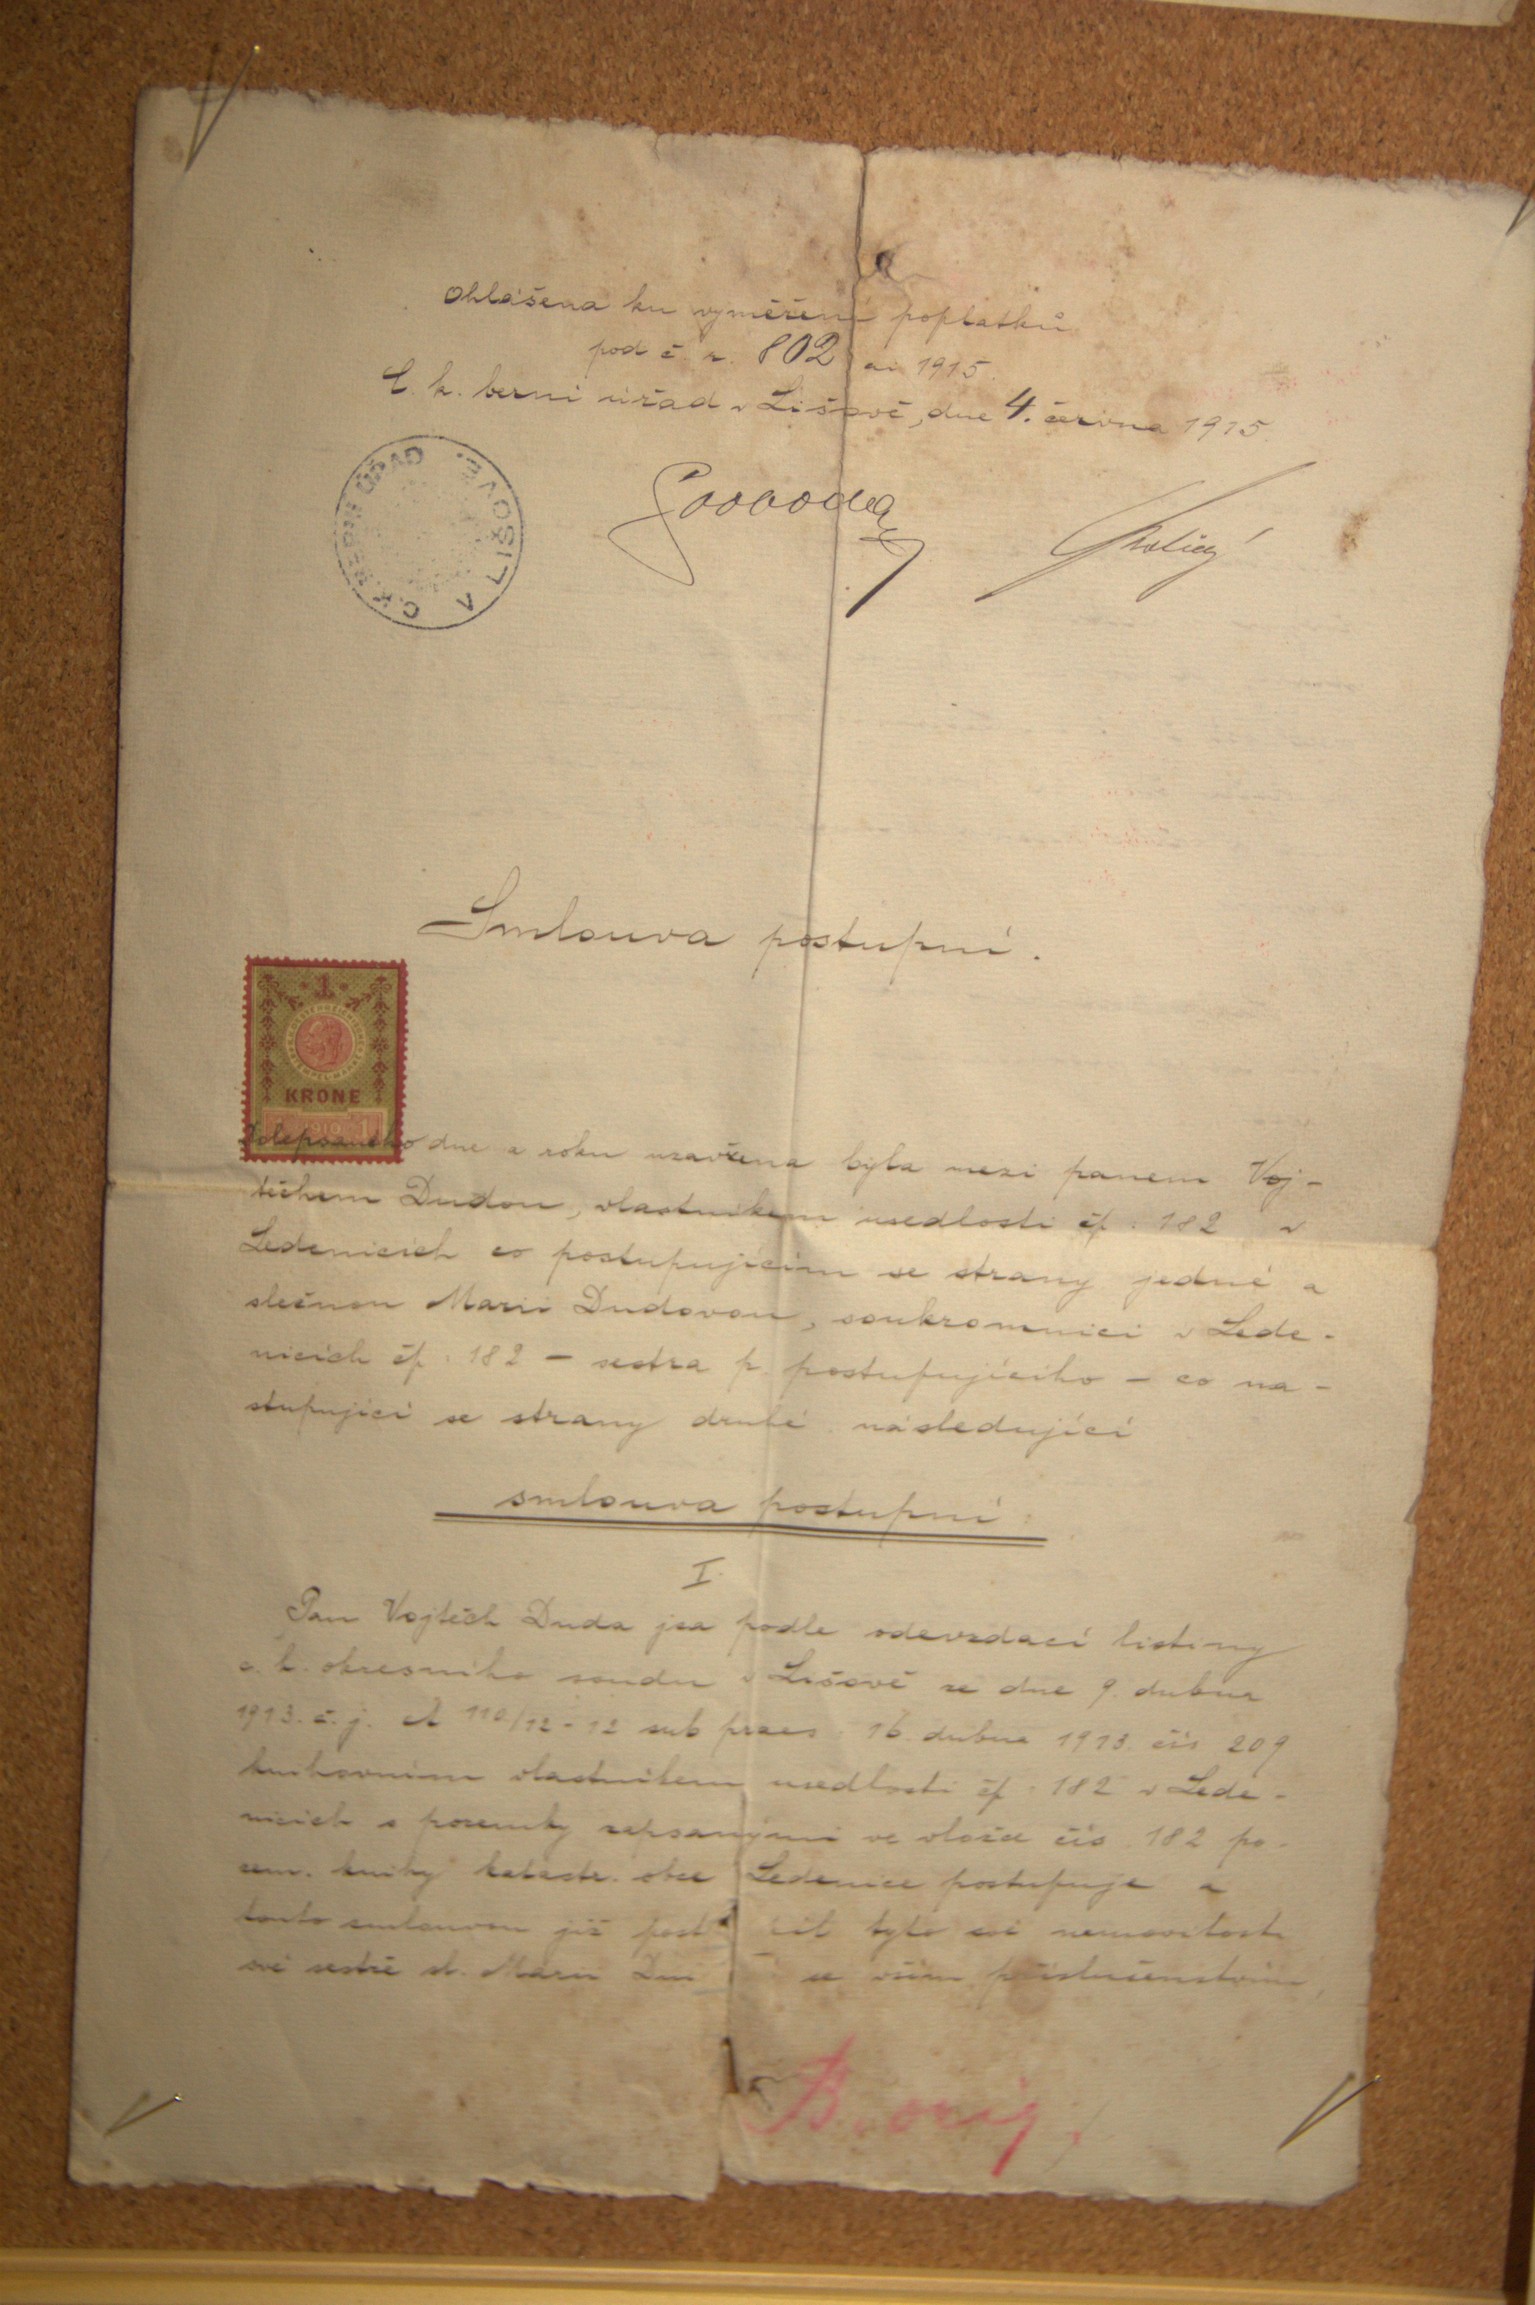 Ohlášena ku vyměření poplatků
pod č. r. 802 ai 1915.
C. k. berní úřad v Lišově, dne 4. června 1915.
C.K. BERNÍ ÚŘAD V LIŠOVĚ.
Svoboda
Smlouva postupní.
1
KRONE
1910 1
Dolepsaného dne a roku uzavřena byla mezi panem Voj-
těchem Dudou, vlastníkem usedlosti čp. 182 v
Ledenicích co postupujícím se strany jedné a
slečnou Marii Dudovou, soukromnicí v Lede-
nicích čp. 182 – sestra p. postupujícího – co na-
stupující se strany druhé následující
smlouva postupní:
I.
Pan Vojtěch Duda jsa podle odevzdací listiny
c. k. okresního soudu v Lišově ze dne 9. dubna
1913. č. j. A 110/12-12 sub praes. 16. dubna 1913. čís 209
knihovním vlastníkem usedlosti čp. 182 v Lede-
nicích s pozemky zapsanými ve vložce čís. 182 po-
zem. knihy katastr. obce Ledenice postupuje a
touto smlouvou již post til tyto své nemovitosti
své sestře sl. Marii Du se vším příslušenstvím,
B. orig.